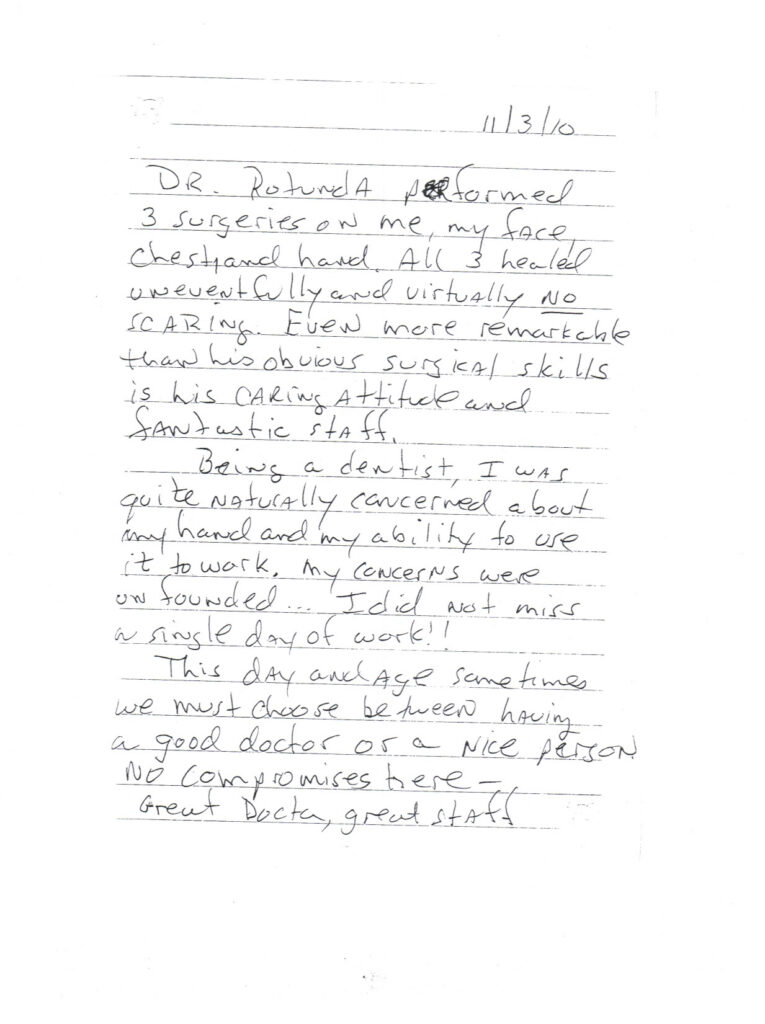 11/3/10
DR. Rotunda performed
3 surgeries on me, my face,
chest, and hand. All 3 healed
uneventfully and virtually NO
SCARING. Even more remarkable
than his obvious surgical skills
is his CARing Attitude and
fantastic staff.
Being a dentist, I was
quite naturally concerned about
my hand and my ability to use
it to work. My concerns were
unfounded... I did not miss
a single day of work!!
This day and age sometimes
we must choose between having
a good doctor or a nice person
NO compromises here –
Great Doctor, great staff